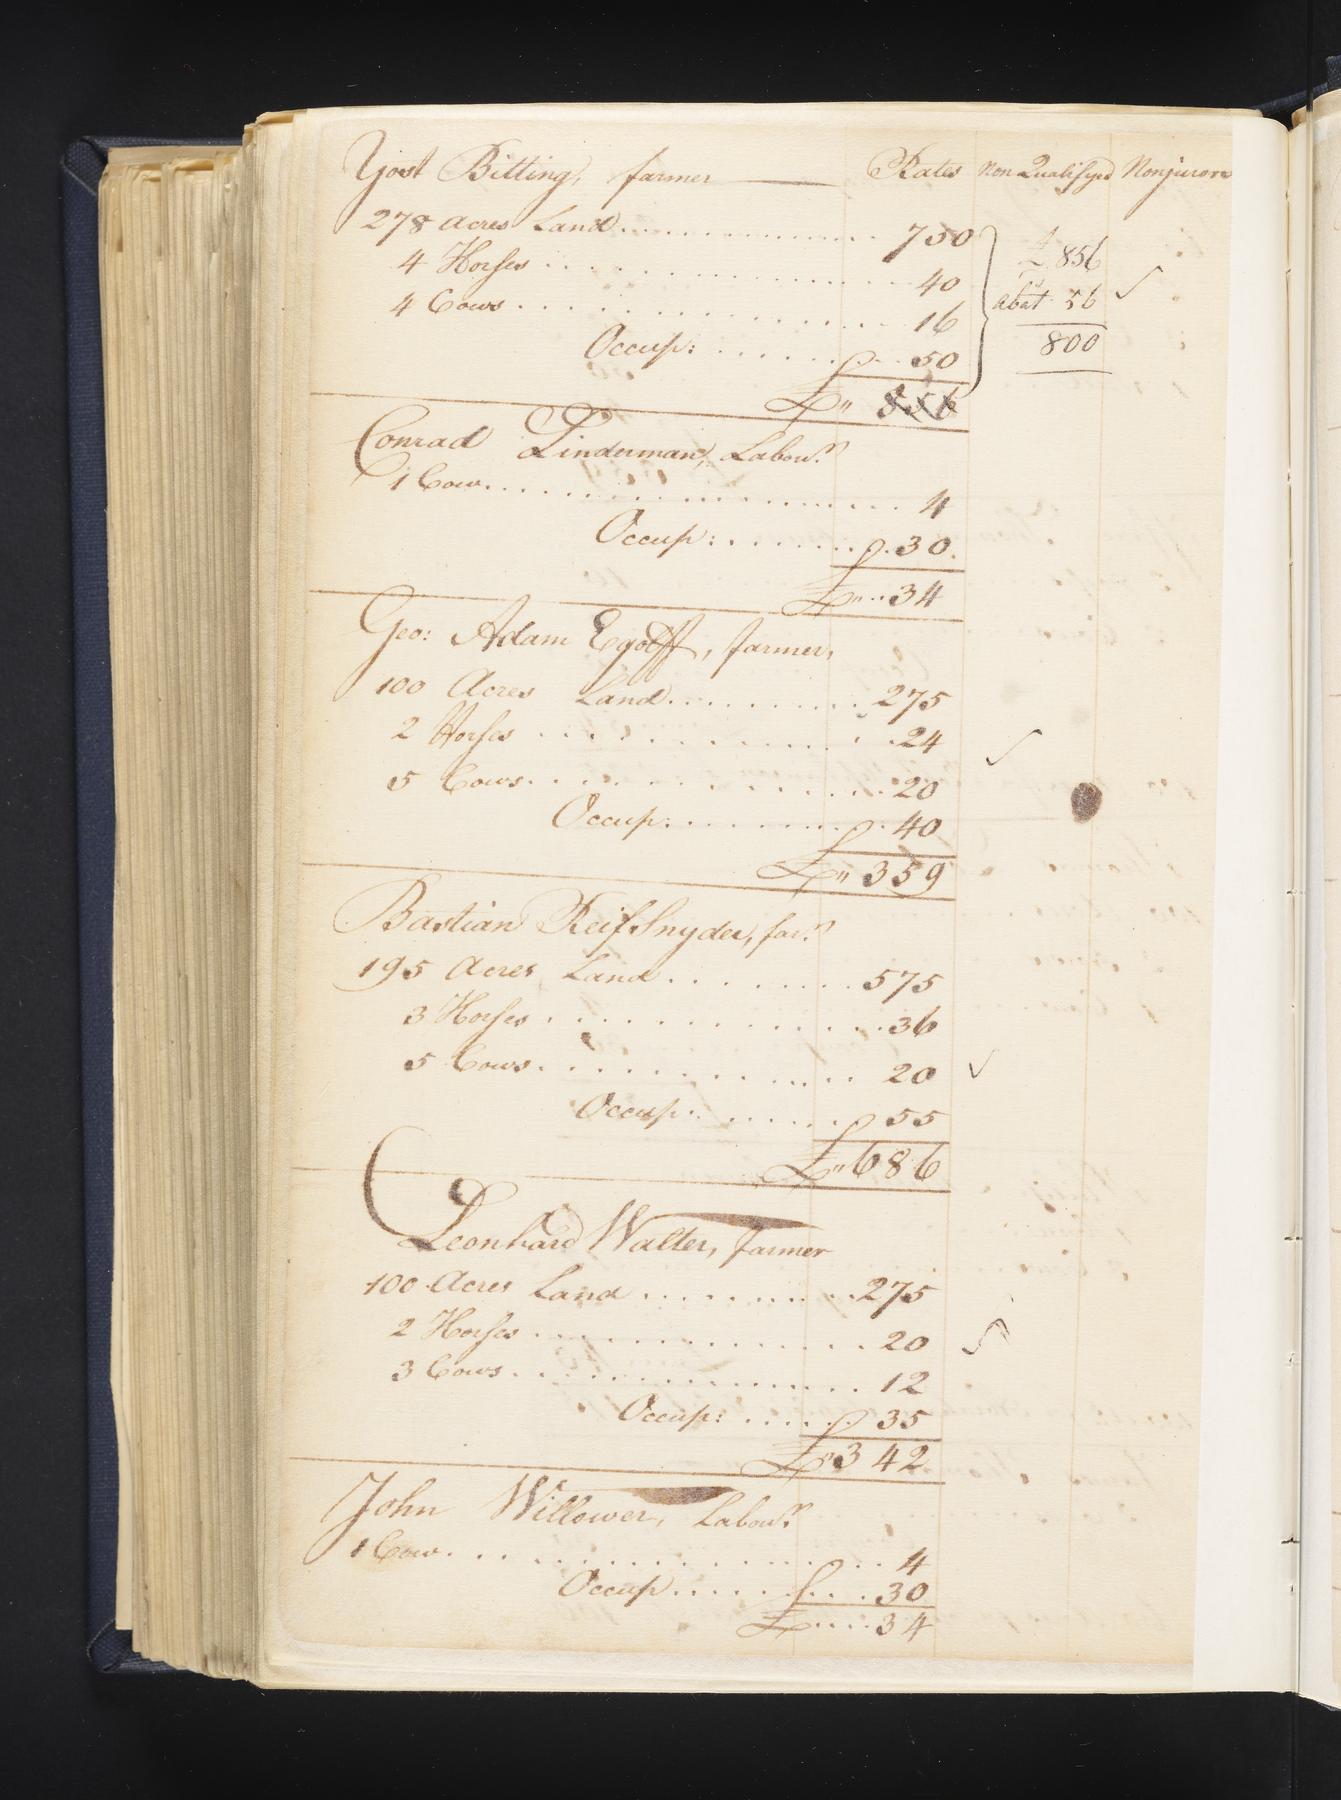 Yost Bitting, farmer Rates Non Qualifyed Nonjurors
278 Acres Land 750
4 Horses 40
4 Cows 16
Occup: 50
£ 856
£ 856
abat 56
800
Conrad Linderman, Labour
1 Cow 4
Occup: 30
£ 34
Geo: Adam Egolff, farmer,
100 Acres Land 275
2 Horses 24
5 Cows 20
Occup: 40
£ 359
Bastian ReifSnyder, far.r
195 Acres Land 575
3 Horses 36
5 Cows 20
Occup: 55
£ 686
Leonhard Walter, farmer
100 Acres Land 275
2 Horses 20
3 Cows 12
Occup: 35
£ 342
John Willower, Labou.r
1 Cow 4
Occup 30
£ 34